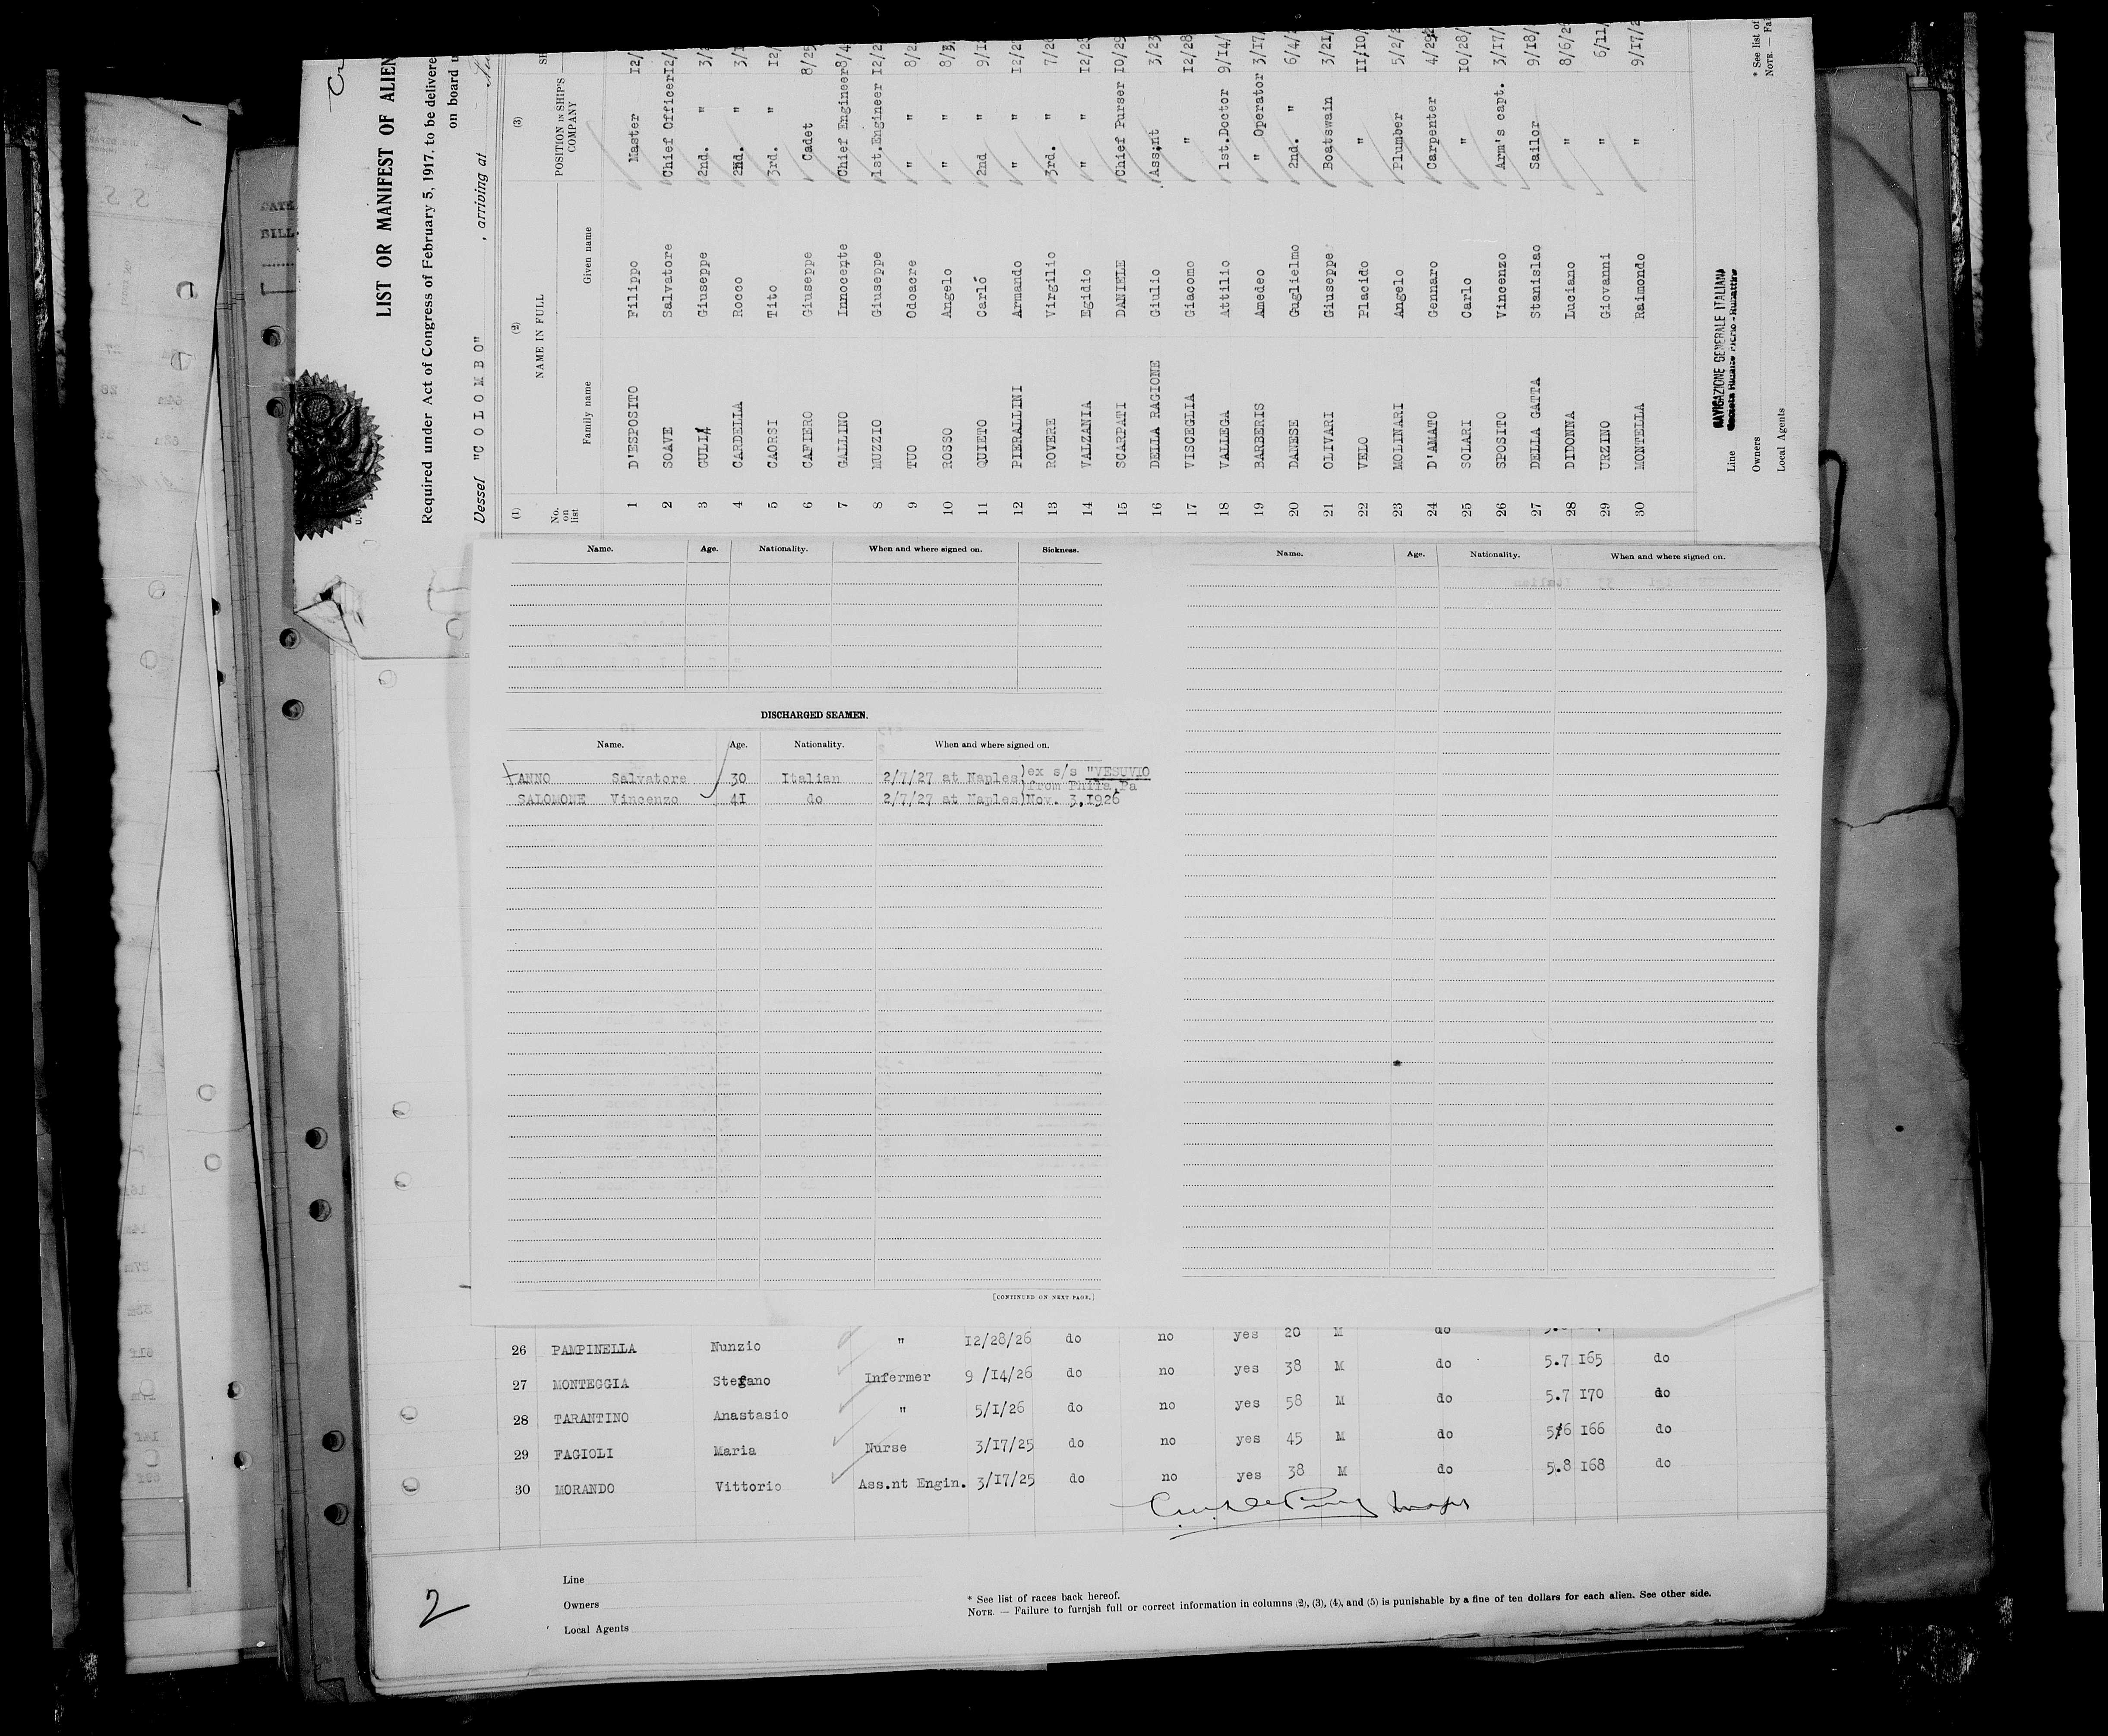 LIST OR MANIFEST OF ALIEN
Required under Act of Congress of February 5, 1917, to be delivered
on board
Vessel "COLOMBO" , arriving at
(1) (2) (3)
No. on list NAME IN FULL POSITION IN SHIP'S COMPANY
Family name Given name
1 D'ESPOSITO Filippo Master 12/
2 SOAVE Salvatore Chief Officer 12/
3 GULI Giuseppe 2nd. " 3/
4 CARDELLA Rocco 2nd. " 3/
5 CAORSI Tito 3rd. " 12/
6 CAFIERO Giuseppe Cadet 8/25
7 GALLINO Innocente Chief Engineer 8/4
8 MUZZIO Giuseppe 1st.Engineer 12/2
9 TUO Odoacre " " 8/2
10 ROSSO Angelo " " 8/3
11 QUIETO Carlo 2nd " 9/1
12 PIERALLINI Armando " " 12/2
13 ROVERE Virgilio 3rd. " 7/2
14 VALZANIA Egidio " " 12/2
15 SCARPATI DANIELE Chief Purser 10/29
16 DELLA RAGIONE Giulio Ass.nt 3/23
17 VISCEGLIA Giacomo " 12/28
18 VALLEGA Attilio 1st.Doctor 9/14/
19 BARBERIS Amedeo " Operator 3/17/
20 DANESE Guglielmo 2nd. " 6/4/
21 OLIVARI Giuseppe Boatswain 3/21/
22 VELO Placido " 11/10/
23 MOLINARI Angelo Plumber 5/2/2
24 D'AMATO Gennaro Carpenter 4/29
25 SOLARI Carlo " 10/28/
26 SPOSITO Vincenzo Arm's capt. 3/17/
27 DELLA GATTA Stanislao Sailor 9/18/
28 DIDONNA Luciano " 8/6/2
29 URZINO Giovanni " 6/11/
30 MONTELLA Raimondo " 9/17/2
Line NAVIGAZIONE GENERALE ITALIANA
Owners
Local Agents
* See list of
NOTE. — Fai
Name. Age. Nationality. When and where signed on. Sickness.
DISCHARGED SEAMEN.
Name. Age. Nationality. When and where signed on.
ANNO Salvatore 30 Italian 2/7/27 at Naples)ex s/s "VESUVIO
)from Phila,Pa
SALOMONE Vincenzo 41 do 2/7/27 at Naples)Nov. 3,1926
[CONTINUED ON NEXT PAGE.]
Name. Age. Nationality. When and where signed on.
26 PAMPINELLA Nunzio " 12/28/26 do no yes 20 M do
27 MONTEGGIA Stefano Infermer 9 /14/26 do no yes 38 M do 5.7 165 do
28 TARANTINO Anastasio " 5/1/26 do no yes 58 M do 5.7 170 do
29 FAGIOLI Maria Nurse 3/17/25 do no yes 45 M do 5/6 166 do
30 MORANDO Vittorio Ass.nt Engin. 3/17/25 do no yes 38 M do 5.8 168 do
2
Line
Owners
Local Agents
* See list of races back hereof.
NOTE. — Failure to furnish full or correct information in columns (2), (3), (4), and (5) is punishable by a fine of ten dollars for each alien. See other side.